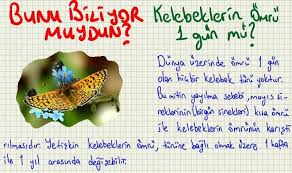 BUNU BİLİYOR
MUYDUN?
Kelebeklerin Ömrü
1 gün mü?
Dünya üzerinde ömrü 1 gün
olan hiçbir kelebek türü yoktur.
Bu mitin yayılma sebebi, mayıs si-
neklerinin (birgün sinekleri) kısa ömrü
ile kelebeklerin ömrünün karıştı
rılmasıdır. Yetişkin kelebeklerin ömrü, türüne bağlı olmak üzere 1 hafta
ile 1 yıl arasında değişebilir.